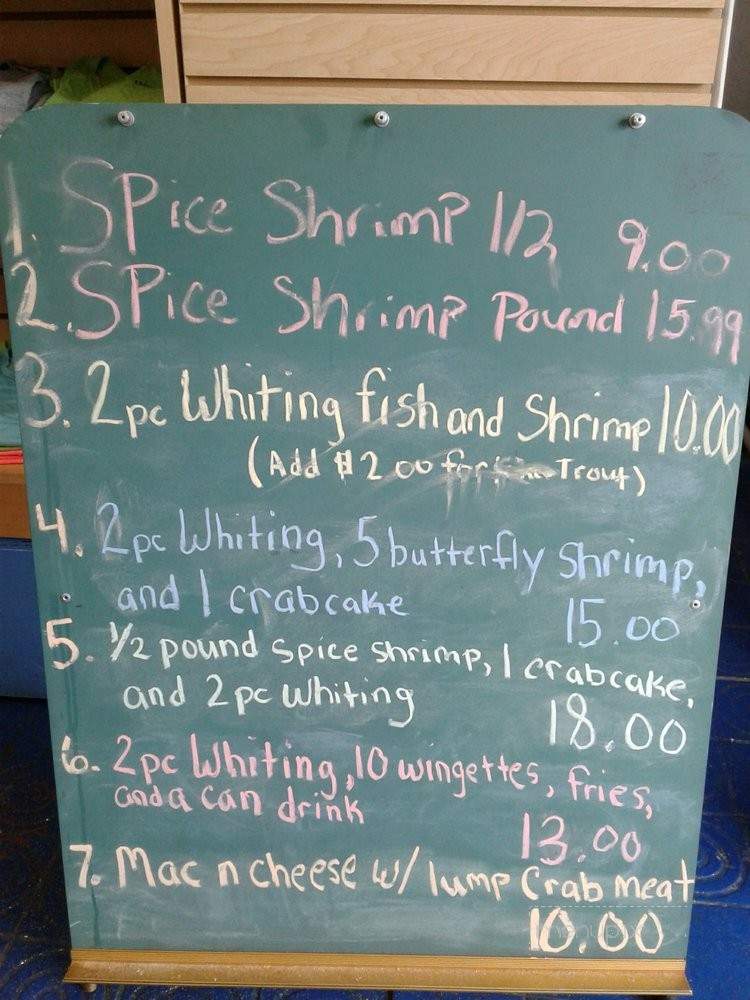 1. SPice Shrimp 1/2 9.00
2. SPice Shrimp Pound 15.99
3. 2pc Whiting fish and Shrimp 10.00
(Add $2.00 for Trout)
4. 2pc Whiting, 5 butterfly shrimp,
and 1 crabcake 15.00
5. 1/2 pound spice shrimp, 1 crabcake,
and 2pc whiting 18.00
6. 2pc Whiting, 10 wingettes, fries,
and a can drink 13.00
7. Mac n cheese w/ lump Crab meat
10.00